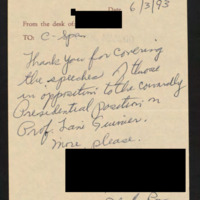 Date 6/3/93
From the desk of
TO: C-Span
Thank you for covering
the speeches of those
in opposition to the cowardly
Presidential position on
Prof. Lani Guinier.
More, please.